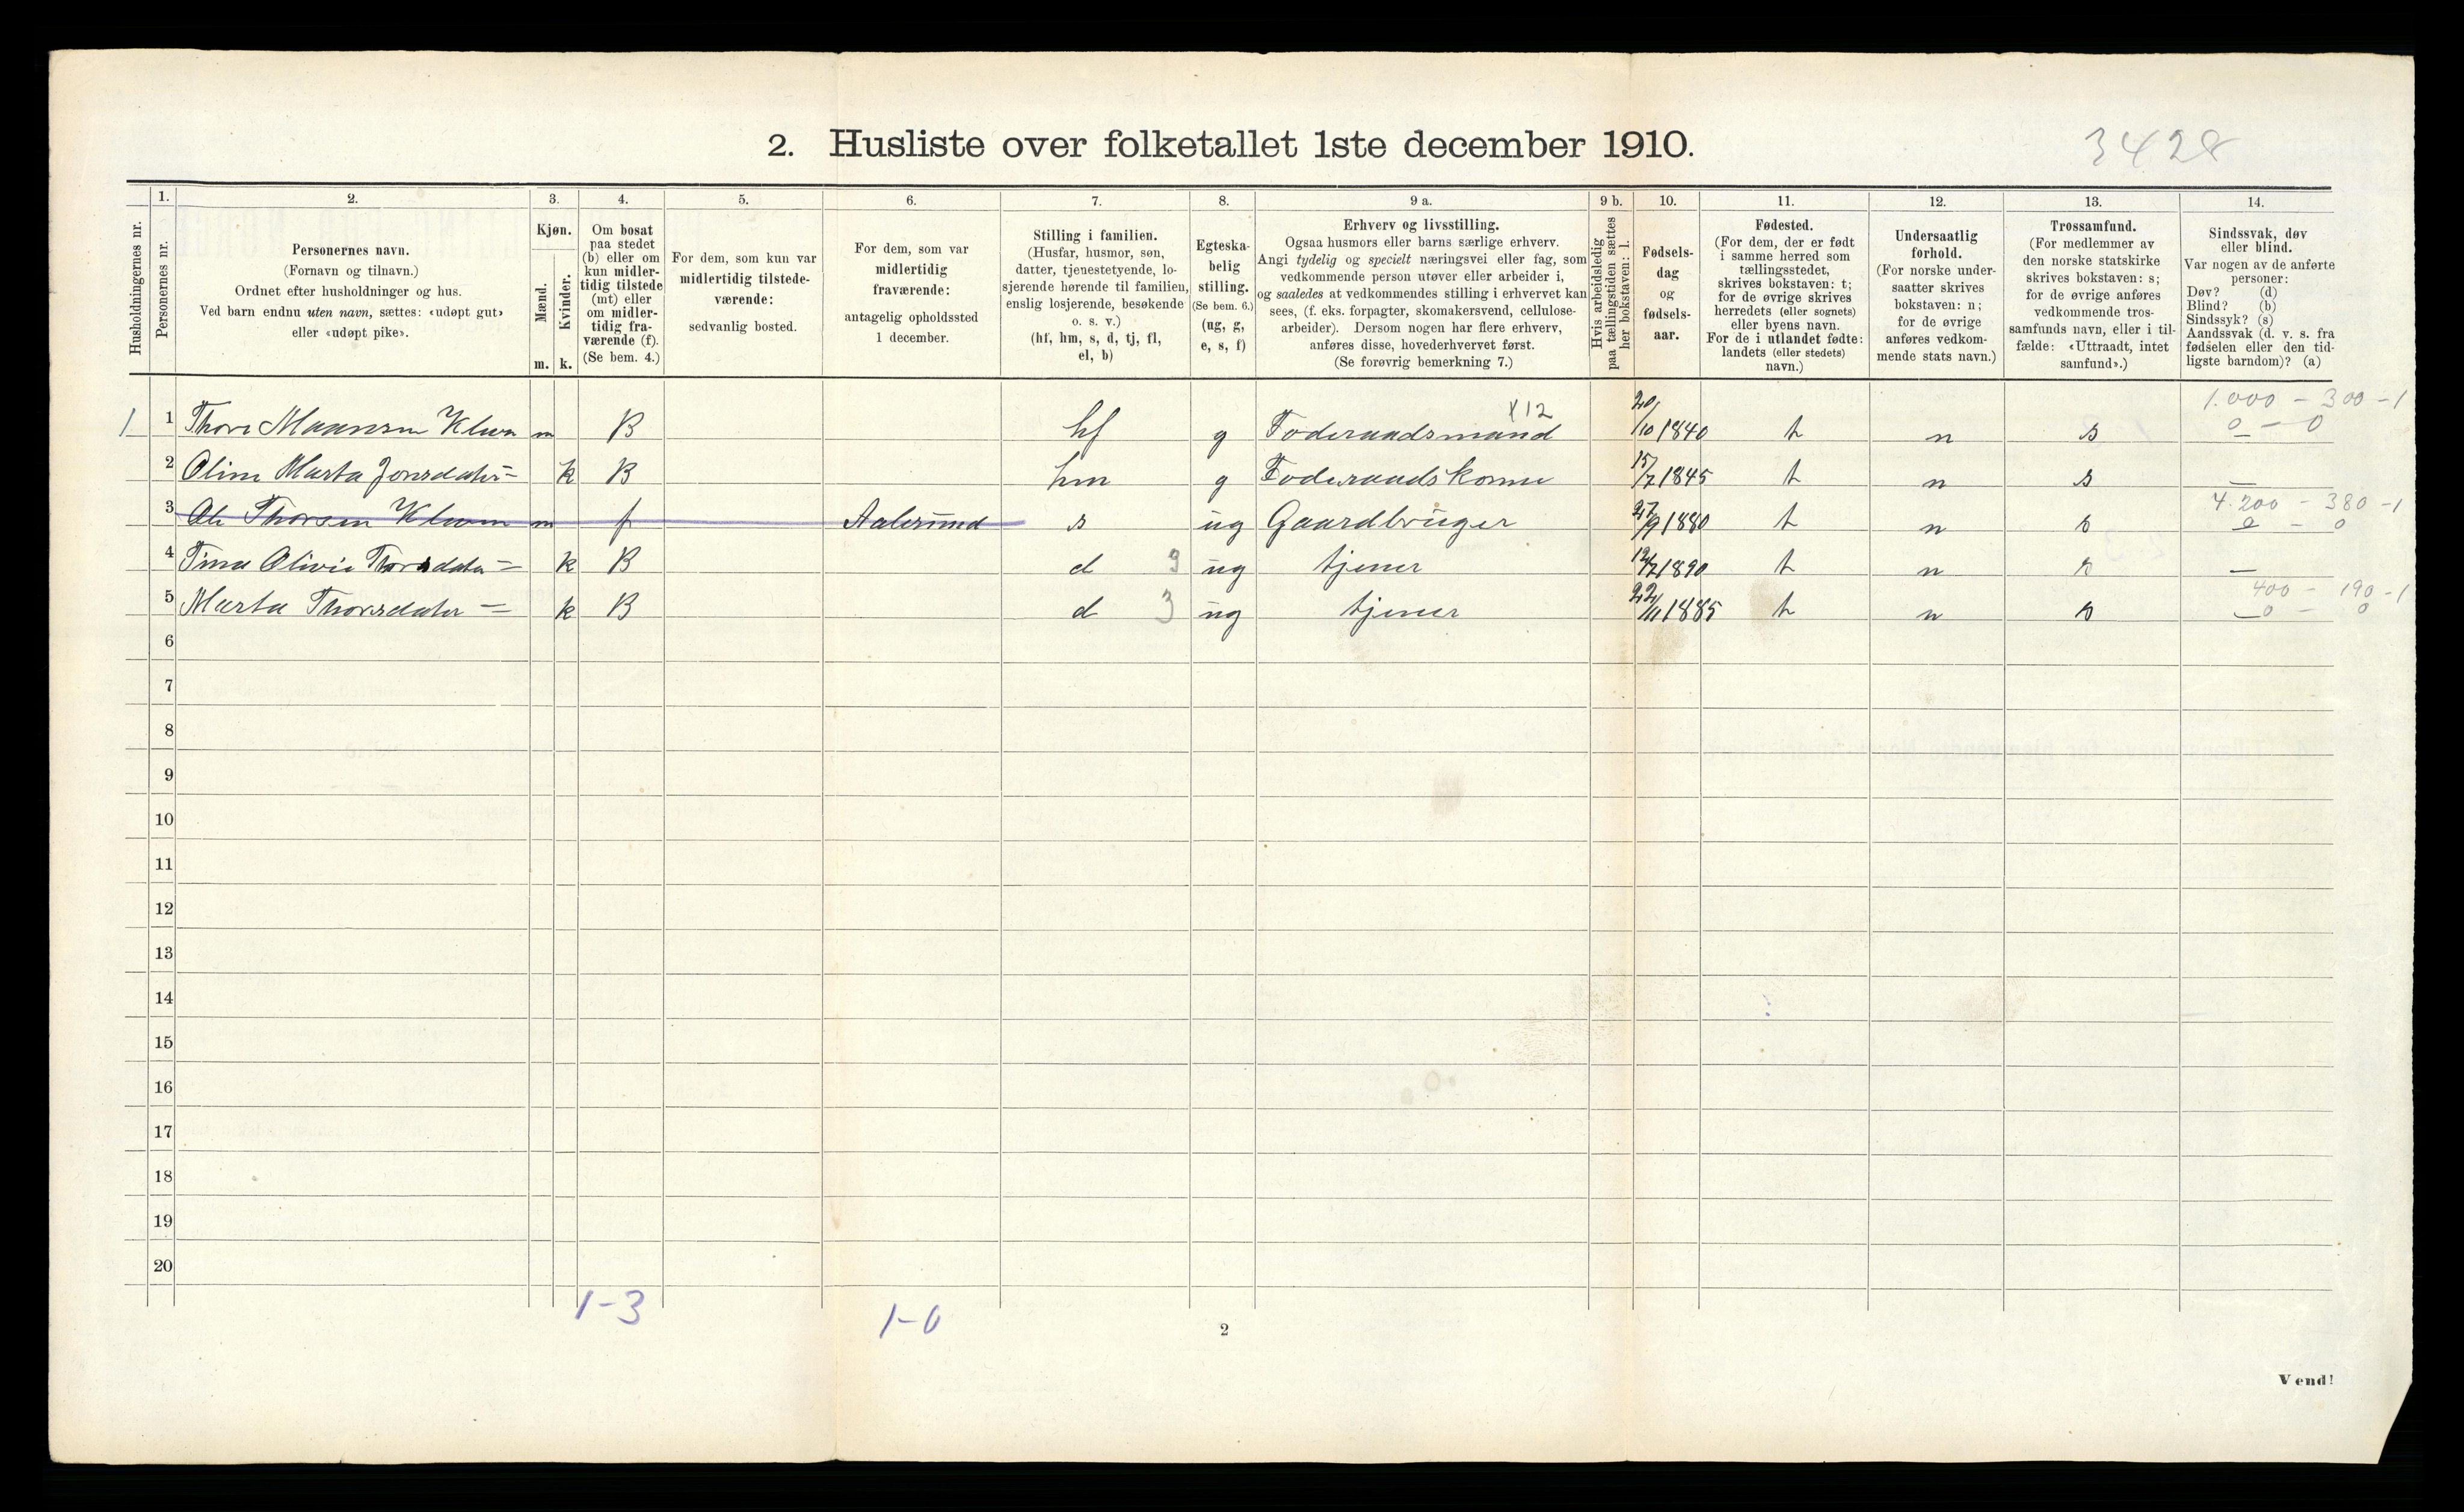 2. Husliste over folketallet 1ste december 1910.
3428
Husholdningernes nr.
1.
Personernes nr.
2.
Personernes navn.
(Fornavn og tilnavn.)
Ordnet efter husholdninger og hus.
Ved barn endnu uten navn, sættes: «udøpt gut»
eller «udøpt pike».
3.
Kjøn.
Mænd.
Kvinder.
m. k.
4.
Om bosat
paa stedet
(b) eller om
kun midler-
tidig tilstede
(mt) eller
om midler-
tidig fra-
værende (f).
(Se bem. 4.)
5.
For dem, som kun var
midlertidig tilstede-
værende:
sedvanlig bosted.
6.
For dem, som var
midlertidig
fraværende:
antagelig opholdssted
1 december.
7.
Stilling i familien.
(Husfar, husmor, søn,
datter, tjenestetyende, lo-
sjerende hørende til familien,
enslig losjerende, besøkende
o. s. v.)
(hf, hm, s, d, tj, fl,
el, b)
8.
Egteska-
belig
stilling.
(Se bem. 6.)
(ug, g,
e, s, f)
9 a.
Erhverv og livsstilling.
Ogsaa husmors eller barns særlige erhverv.
Angi tydelig og specielt næringsvei eller fag, som
vedkommende person utøver eller arbeider i,
og saaledes at vedkommendes stilling i erhvervet kan
sees, (f. eks. forpagter, skomakersvend, cellulose-
arbeider). Dersom nogen har flere erhverv,
anføres disse, hovederhvervet først.
(Se forøvrig bemerkning 7.)
9 b.
Hvis arbeidsledig
paa tællingstiden sættes
her bokstaven: l.
10.
Fødsels-
dag
og
fødsels-
aar.
11.
Fødested.
(For dem, der er født
i samme herred som
tællingsstedet,
skrives bokstaven: t;
for de øvrige skrives
herredets (eller sognets)
eller byens navn.
For de i utlandet fødte:
landets (eller stedets)
navn.)
12.
Undersaatlig
forhold.
(For norske under-
saatter skrives
bokstaven: n;
for de øvrige
anføres vedkom-
mende stats navn.)
13.
Trossamfund.
(For medlemmer av
den norske statskirke
skrives bokstaven: s;
for de øvrige anføres
vedkommende tros-
samfunds navn, eller i til-
fælde: «Uttraadt, intet
samfund».)
14.
Sindssvak, døv
eller blind.
Var nogen av de anførte
personer:
Døv? (d)
Blind? (b)
Sindssyk? (s)
Aandssvak (d. v. s. fra
fødselen eller den tid-
ligste barndom)? (a)
X12 1.000 - 300 - 1
1 1 m B hf g Føderaadsmand 20/10 1840 t n s 0 - 0
2 Oline Marta Jonsdater = k B hm g Føderaadskone 15/7 1845 t n s —
4.200 - 380 - 1
3 Ole Thorsen m f Aalesund s ug Gaardbruger 27/9 1880 t n s 0 - 0
4 Tina Olivie Thorsdater = k B d 9 ug tjener 12/7 1890 t n s —
400 - 190 - 1
5 Marta Thorsdater = k B d 3 ug tjener 22/11 1885 t n s 0 - 0
6
7
8
9
10
11
12
13
14
15
16
17
18
19
20
1-3
1-0
2
Vend!